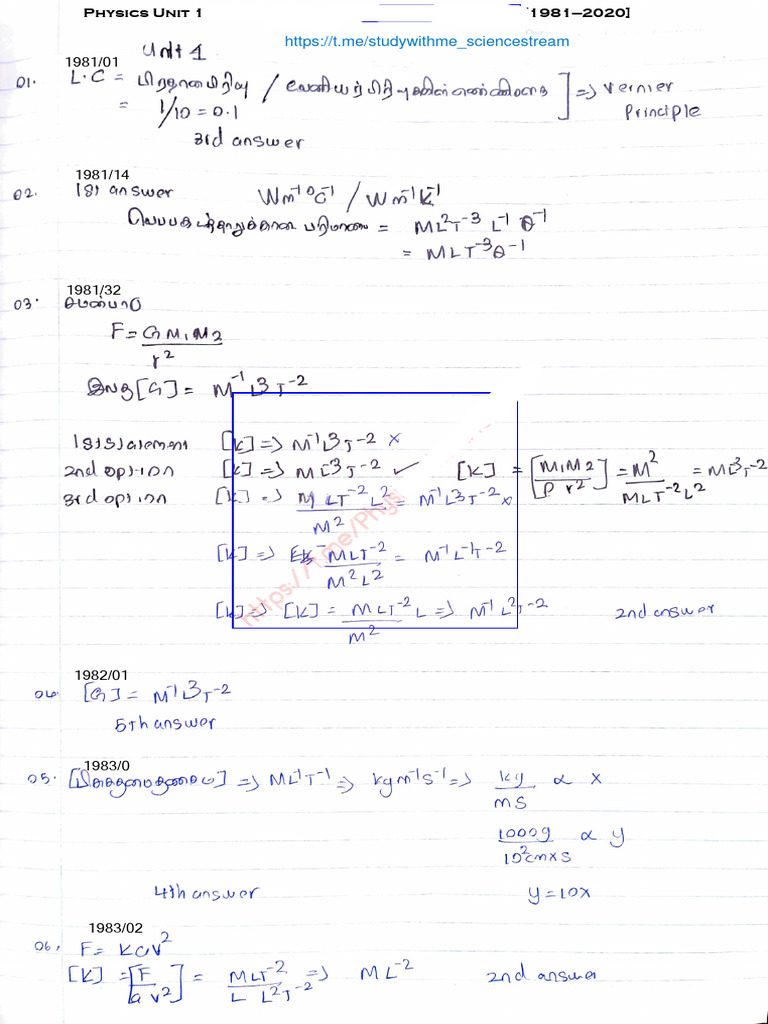 PHYSICS UNIT 1 1981–2020]
https://t.me/studywithme_sciencestream
Unit 1
1981/01
01. L.C = பிரதானபிரிவு / வேனியர்பிரிவுகளின்எண்ணிக்கை ] => Vernier
= 1/10 = 0.1 Principle
3rd answer
1981/14
02. 1st answer Wm⁻¹ °C⁻¹ / Wm⁻¹K⁻¹
வெப்பக்கடத்தாறுக்கான பரிமாணம் = ML²T⁻³ L⁻¹ θ⁻¹
= MLT⁻³θ⁻¹
1981/32
03. சமன்பாடு
F = GM₁M₂
r²
[G] = M⁻¹L³T⁻²
[K] => M⁻¹L³T⁻² ×
2nd option [K] => ML⁻³T⁻² ✓ [K] = [M₁M₂ / P r²] = M² / MLT⁻²L² = ML⁻³T⁻²
3rd option [K] => MLT⁻²L² / M² = M⁻¹L³T⁻² ×
[K] => MLT⁻² / M²L² = M⁻¹L⁻¹T⁻²
[K] => [K] = MLT⁻²L / M² => M⁻¹L²T⁻² 2nd answer
https://t.me/Phys
1982/01
04. [G] = M⁻¹L³T⁻²
5th answer
1983/0
05. => ML⁻¹T⁻¹ => kgm⁻¹s⁻¹ => kg / ms ∝ x
1000g / 10²cm×s ∝ y
4th answer y = 10x
1983/02
06. F = kav²
[K] = [F / a v²] = MLT⁻² / L L²T⁻² => ML⁻² 2nd answer